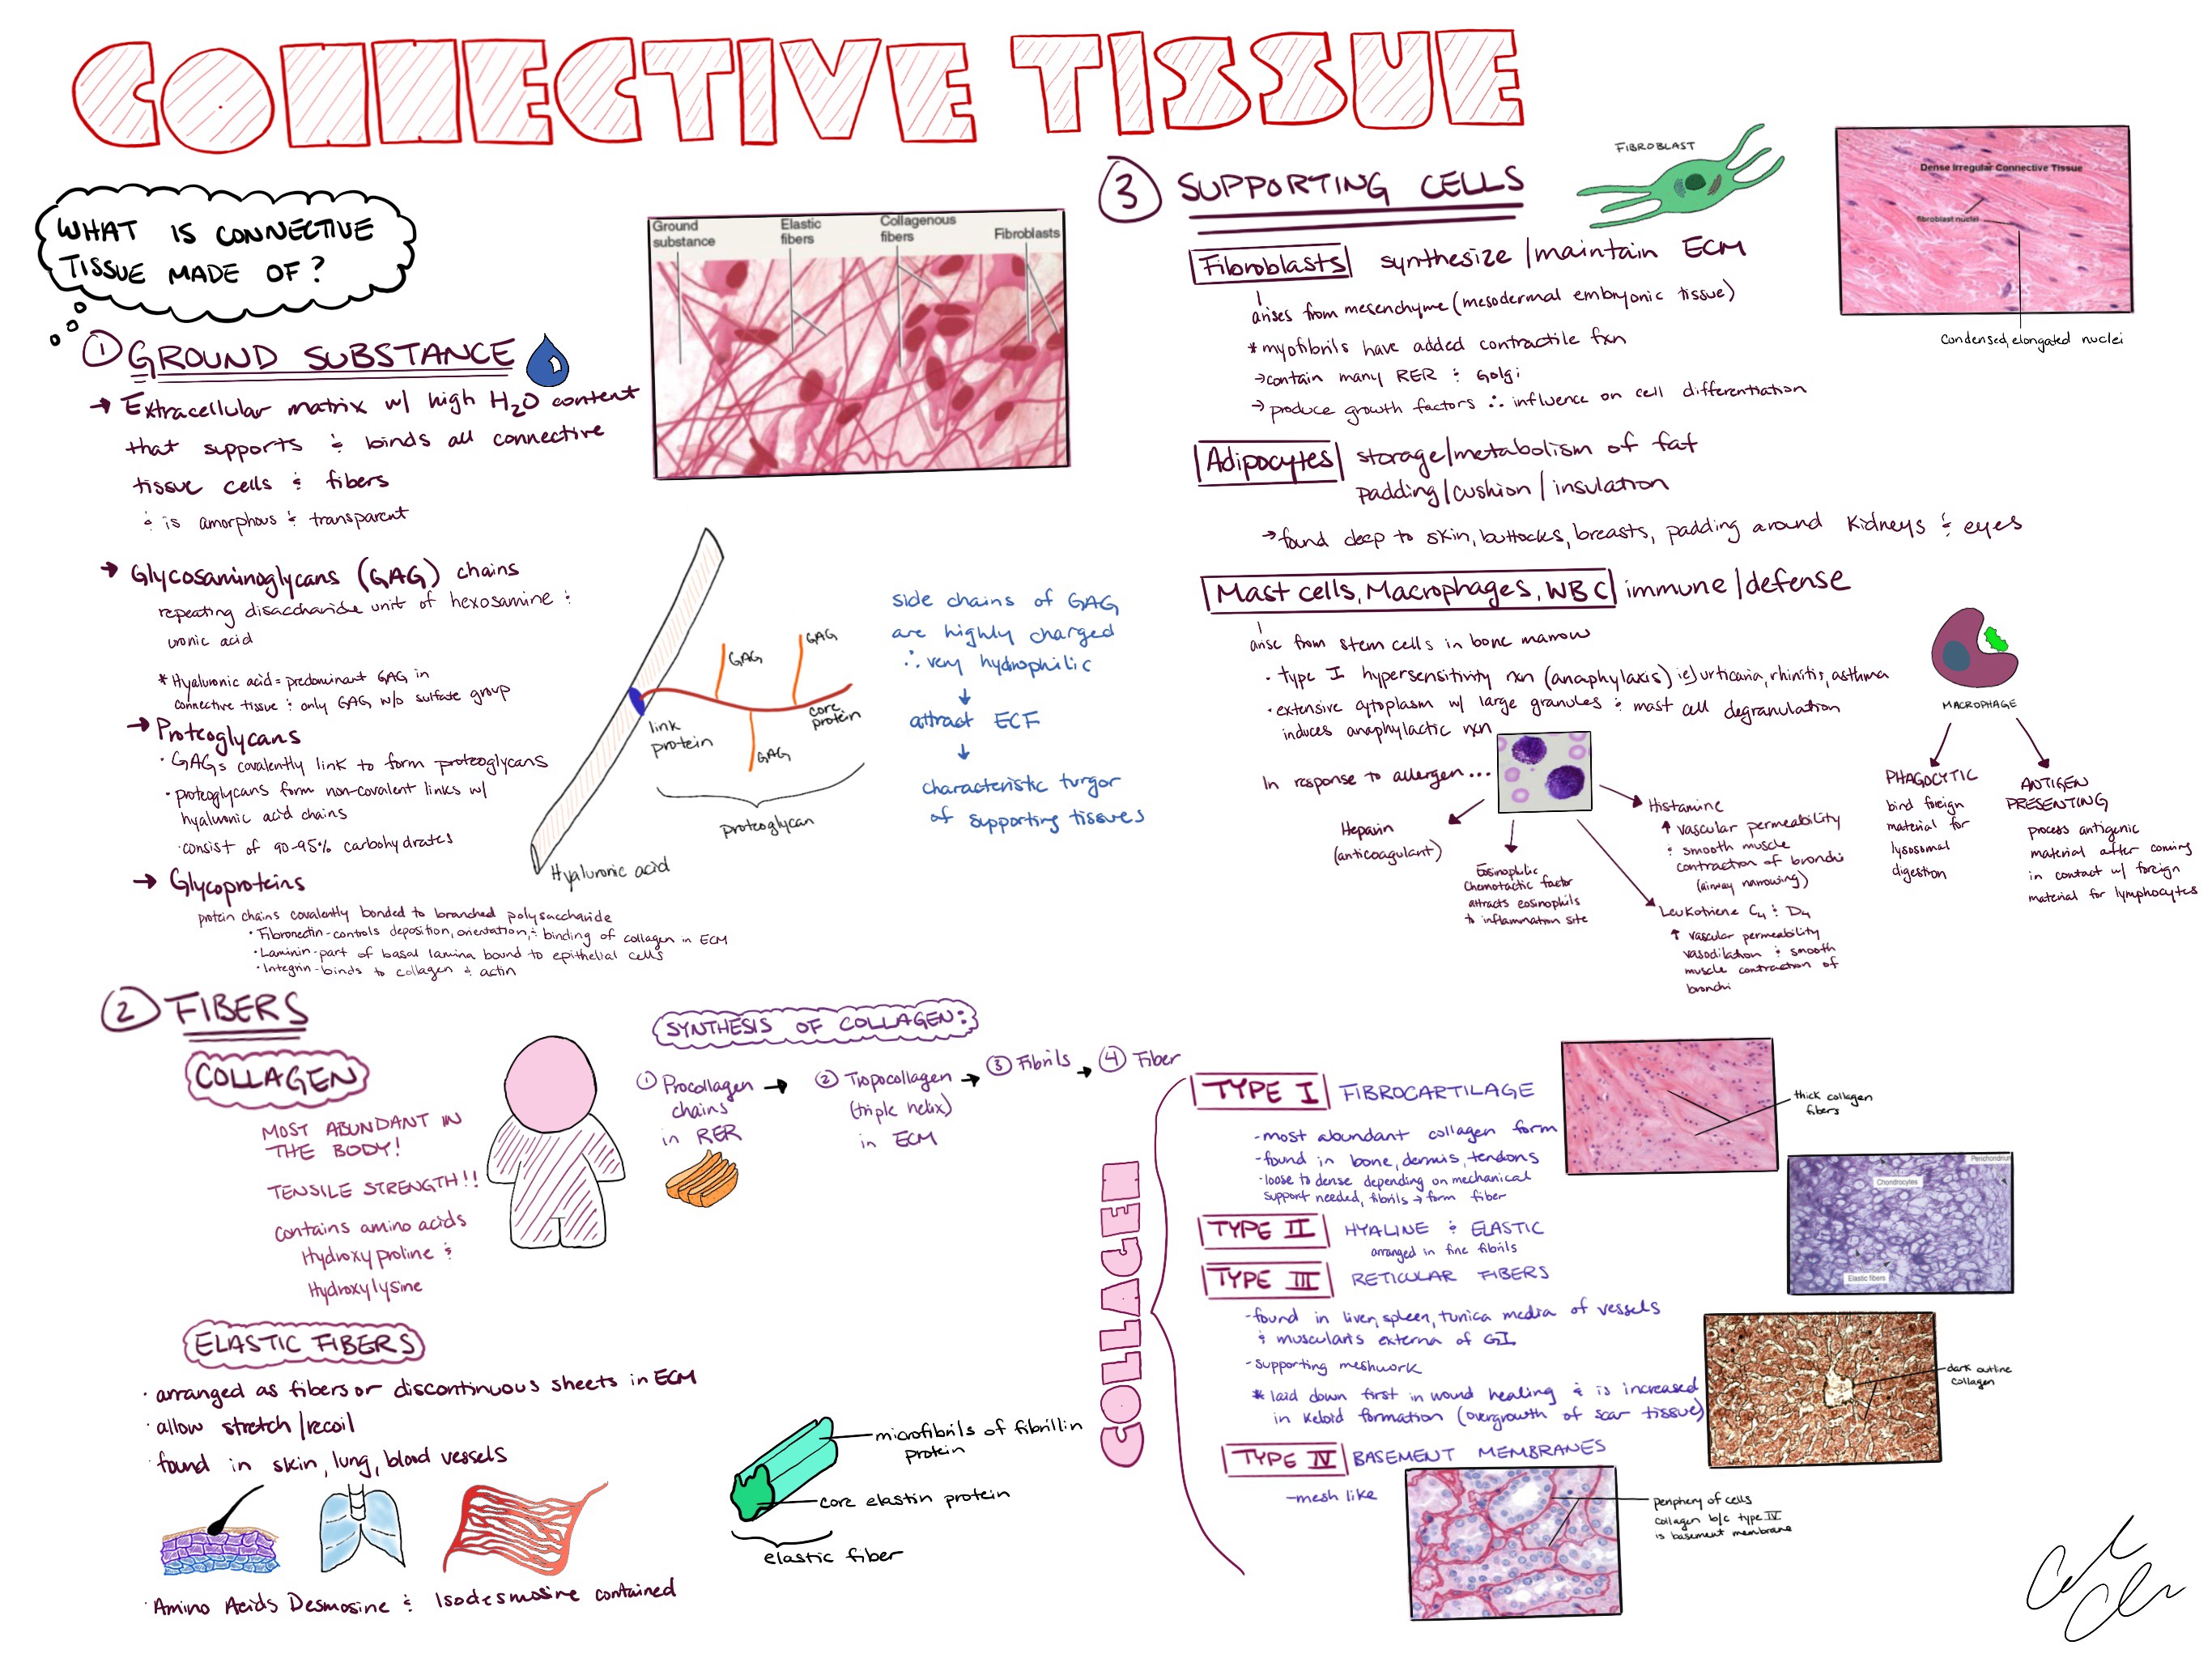 CONNECTIVE TISSUE
WHAT IS CONNECTIVE
TISSUE MADE OF?
① GROUND SUBSTANCE
→ Extracellular matrix w/ high H₂O content
that supports & binds all connective
tissue cells & fibers
& is amorphous & transparent
→ Glycosaminoglycans (GAG) chains
repeating disaccharide unit of hexosamine &
uronic acid
* Hyaluronic acid = predominant GAG in
connective tissue & only GAG w/o sulfate group
→ Proteoglycans
· GAGs covalently link to form proteoglycans
· proteoglycans form non-covalent links w/
hyaluronic acid chains
· consist of 90-95% carbohydrates
→ Glycoproteins
protein chains covalently bonded to branched polysaccharide
· Fibronectin - controls deposition, orientation, & binding of collagen in ECM
· Laminin - part of basal lamina bound to epithelial cells
· Integrin - binds to collagen & actin
Ground
substance
Elastic
fibers
Collagenous
fibers
Fibroblasts
GAG
GAG
GAG
link
protein
core
protein
proteoglycan
Hyaluronic acid
side chains of GAG
are highly charged
∴ very hydrophilic
↓
attract ECF
↓
characteristic turgor
of supporting tissues
② FIBERS
COLLAGEN
MOST ABUNDANT IN
THE BODY!
TENSILE STRENGTH!!
Contains amino acids
Hydroxyproline &
Hydroxylysine
SYNTHESIS OF COLLAGEN:
① Procollagen →
chains
in RER
② Tropocollagen →
(triple helix)
in ECM
③ Fibrils →
④ Fiber
ELASTIC FIBERS
· arranged as fibers or discontinuous sheets in ECM
· allow stretch/recoil
· found in skin, lung, blood vessels
· Amino Acids Desmosine & Isodesmosine contained
microfibrils of fibrillin
protein
core elastin protein
elastic fiber
③ SUPPORTING CELLS
FIBROBLAST
Dense Irregular Connective Tissue
fibroblast nuclei
Condensed, elongated nuclei
Fibroblasts synthesize/maintain ECM
arises from mesenchyme (mesodermal embryonic tissue)
* myofibrils have added contractile fxn
→ contain many RER & Golgi
→ produce growth factors ∴ influence on cell differentiation
Adipocytes storage/metabolism of fat
padding/cushion/insulation
→ found deep to skin, buttocks, breasts, padding around kidneys & eyes
Mast cells, Macrophages, WBC immune/defense
arise from stem cells in bone marrow
· type I hypersensitivity rxn (anaphylaxis) ie) urticaria, rhinitis, asthma
· extensive cytoplasm w/ large granules & mast cell degranulation
induces anaphylactic rxn
In response to allergen...
Heparin
(anticoagulant)
Eosinophilic
Chemotactic factor
attracts eosinophils
to inflammation site
Histamine
↑ vascular permeability
& smooth muscle
contraction of bronchi
(airway narrowing)
Leukotriene C₄ & D₄
↑ vascular permeability
vasodilation & smooth
muscle contraction of
bronchi
MACROPHAGE
PHAGOCYTIC
bind foreign
material for
lysosomal
digestion
ANTIGEN
PRESENTING
process antigenic
material after coming
in contact w/ foreign
material for lymphocytes
COLLAGEN
TYPE I FIBROCARTILAGE
- most abundant collagen form
- found in bone, dermis, tendons
- loose to dense depending on mechanical
support needed, fibrils → form fiber
thick collagen
fibers
TYPE II HYALINE & ELASTIC
arranged in fine fibrils
Perichondrium
Chondrocytes
Elastic fibers
TYPE III RETICULAR FIBERS
- found in liver, spleen, tunica media of vessels
& muscularis externa of GI
- supporting meshwork
* laid down first in wound healing & is increased
in keloid formation (overgrowth of scar tissue)
dark outline
collagen
TYPE IV BASEMENT MEMBRANES
- mesh like
periphery of cells
collagen b/c type IV
is basement membrane